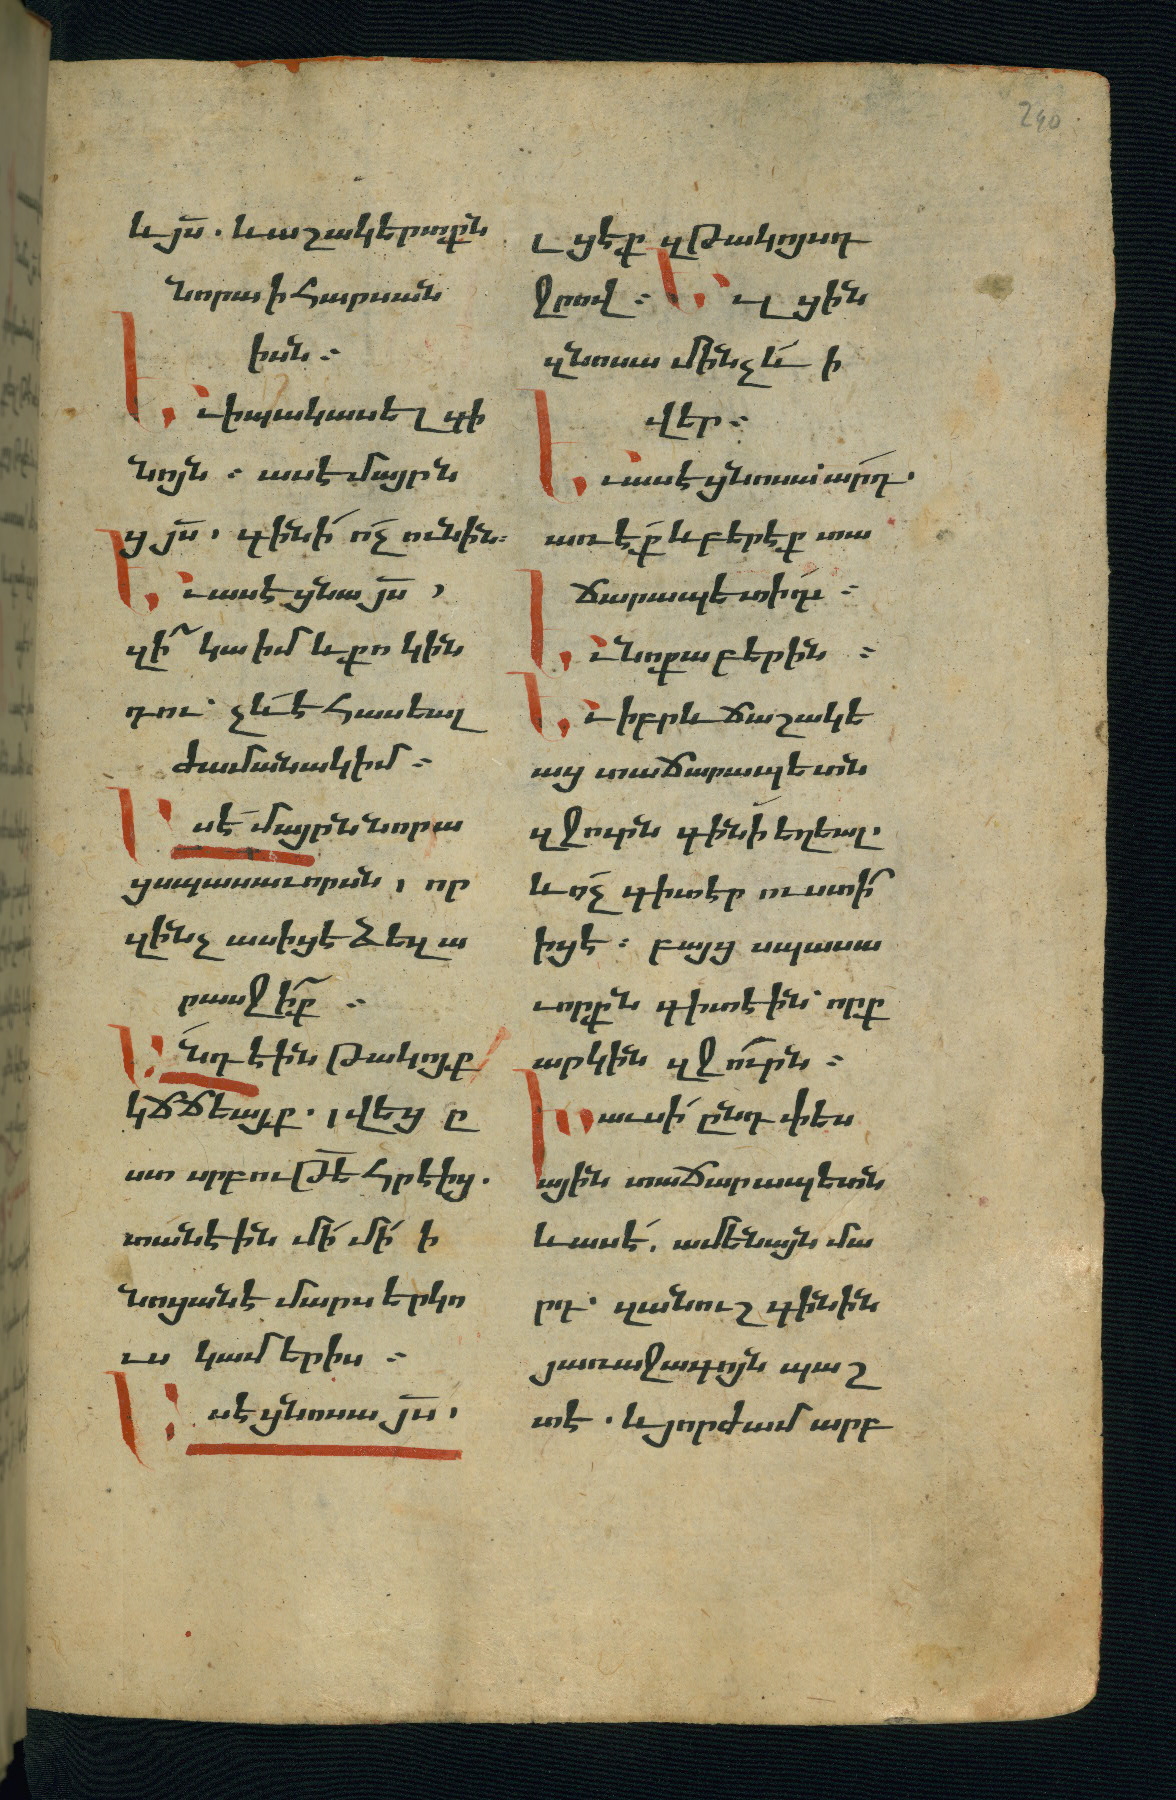 240
և յս̅. և աշակերտքն
նորա ի հարսան
իսն։
Եւ ի պակասել գի
նոյն։ ասէ մայրն
ց յս̅, գինի ոչ ունին։
Եւ ասէ ցնա յս̅,
զի՞ կա իմ և քո կին
դու. չև է հասեալ
ժամանակ իմ։
Ասէ մայրն նորա
ցսպասաւորսն, որ
զինչ ասիցէ ձեզ ա
րասջիք։
Անդ էին թակոյք
կճճեայք. վեց ը
ստ սրբութե̅ հրէից.
տանէին մի մի ի
նոցանէ մարս երկո
ւս կամ երիս։
Ասէ ցնոսա յս̅,
լցէք զթակոյսդ
ջրով։ Եւ լցին
զնոսա մինչև ի
վեր։
Եւ ասէ ցնոսա. արդ.
առէք և բերէք տա
ճարապետիդ։
Եւ նոքա բերին։
Եւ իբրև ճաշակե
աց տաճարապետն
զջուրն գինի եղեալ.
և ոչ գիտէր ուստի՞
իցէ։ բայց սպասա
ւորքն գիտէին. որք
արկին զջուրն։
Խաւսի ընդ փես
ային տաճարապետն
և ասէ. ամենայն մա
րդ. զանուշ գինին
յառաջագոյն պաշ
տէ. և յորժամ արբ